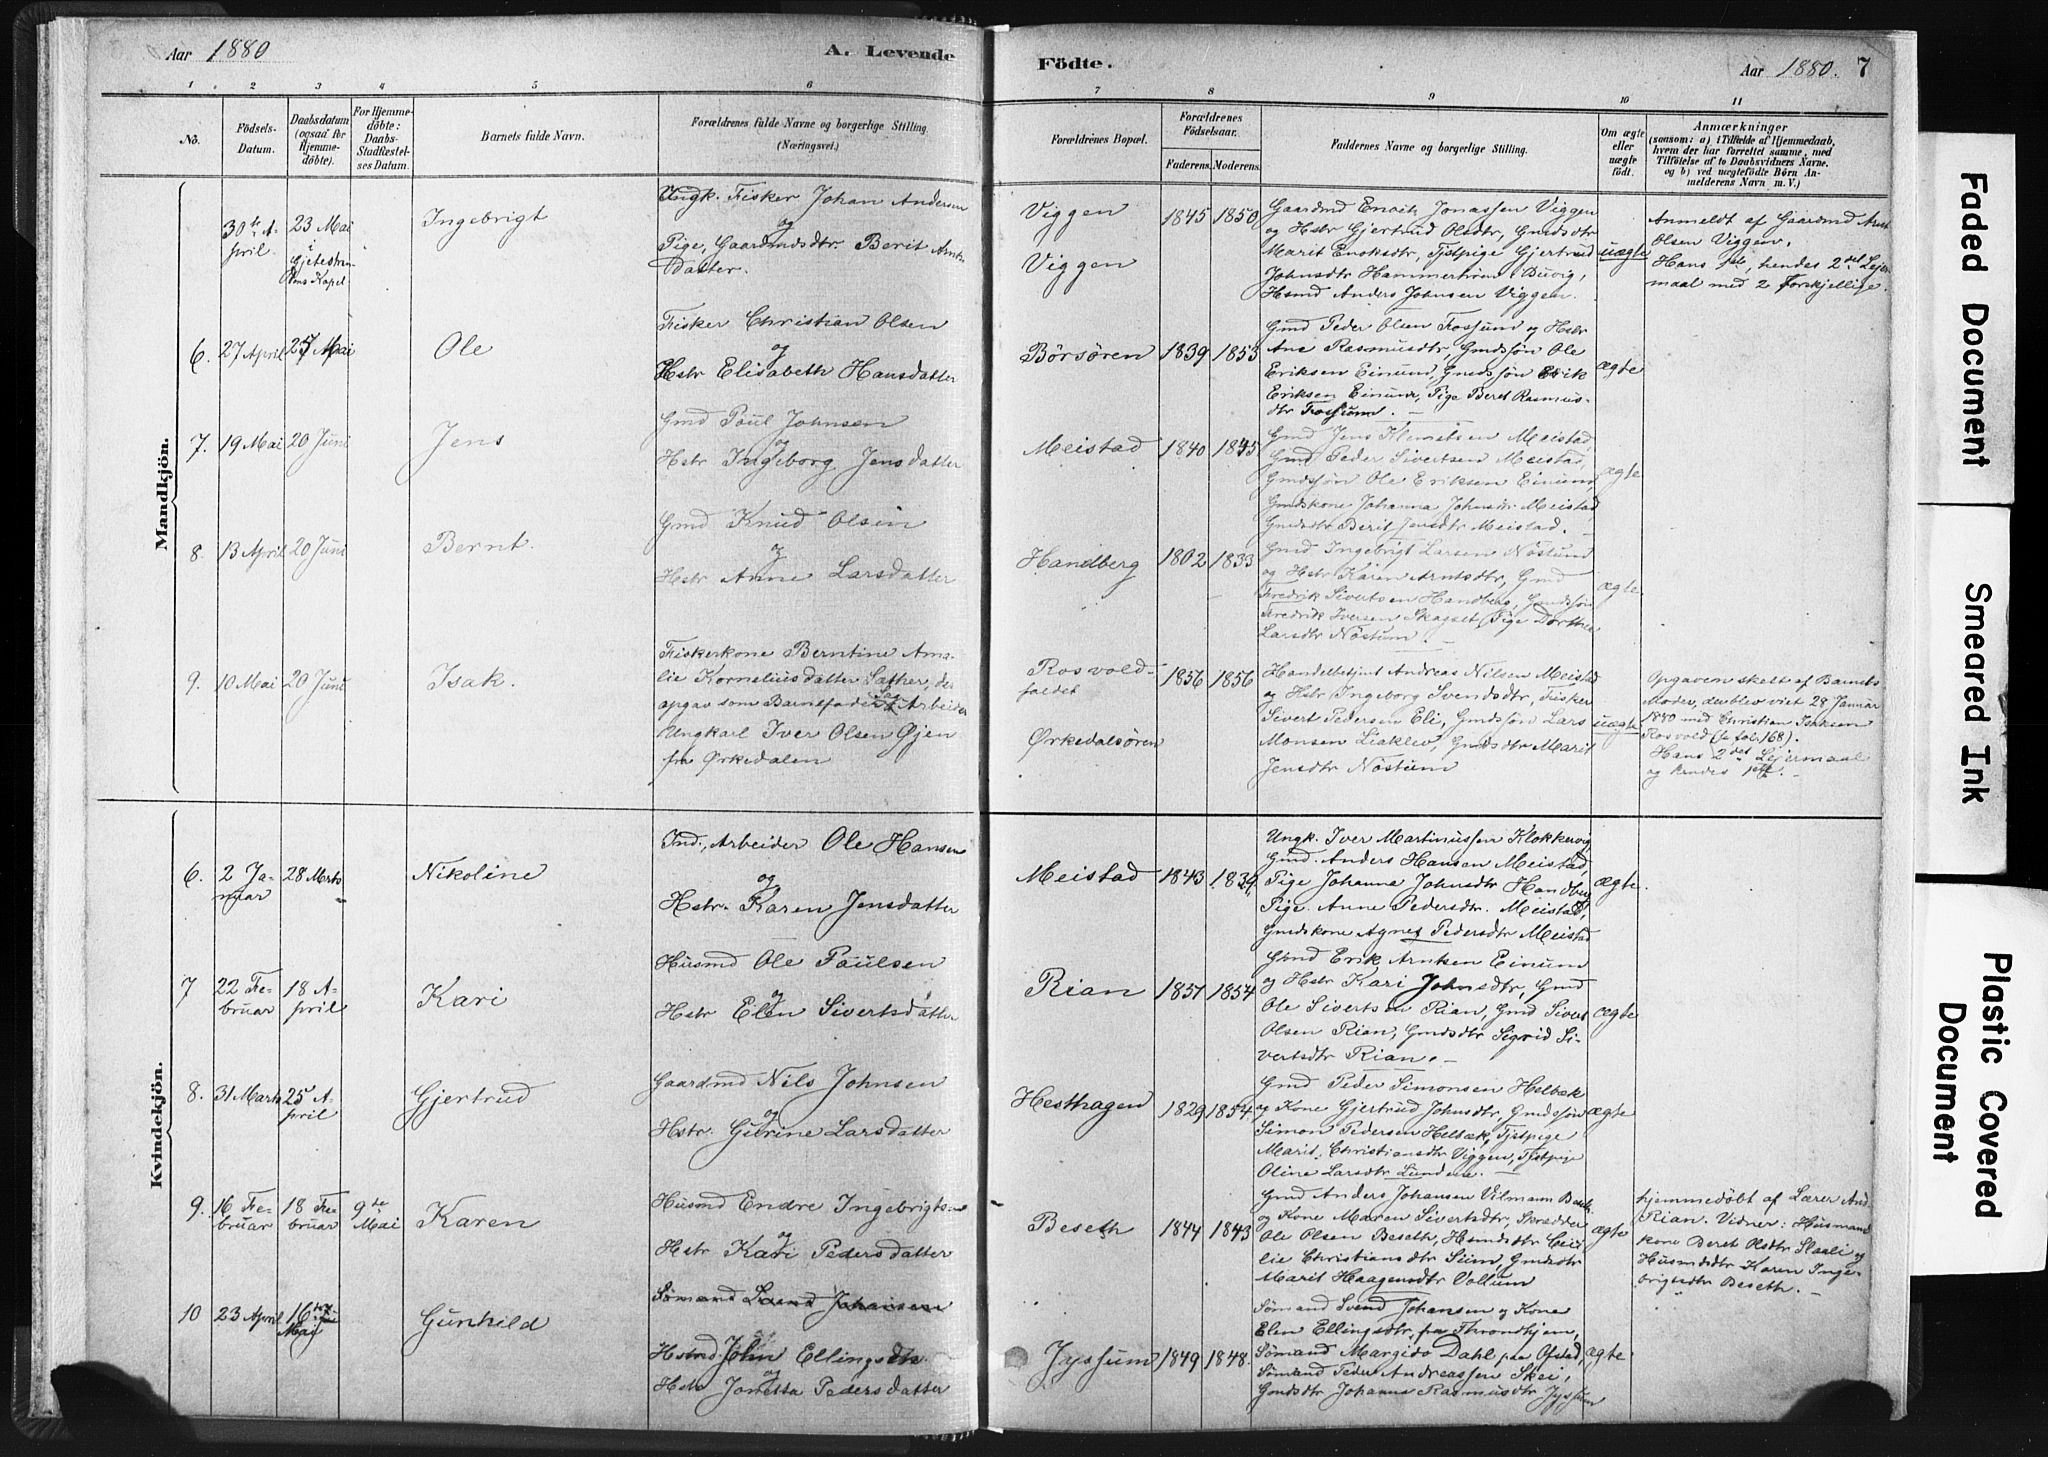 Aar 1880
A. Levende
Födte.
Aar 1880. 7
1 2 3 4 5 6 7 8 9 10 11
No.
Födsels-
Datum.
Daabsdatum
(ogsaa for
Hjemme-
döbte).
For Hjemme-
döbte:
Daabs-
Stadfæstel-
ses Datum.
Barnets fulde Navn.
Forældrenes fulde Navne og borgerlige Stilling.
(Næringsvei.)
Forældrenes Bopæl.
Forældrenes
Födselsaar.
Faderens. Moderens.
Faddernes Navne og borgerlige Stilling.
Om ægte
eller
uægte
födt.
Anmærkninger
(saasom: a) i Tilfælde af Hjemmedaab,
hvem der har forrettet samme, med
Tilföielse af to Daabsvidners Navne.
og b) ved uægtefödte Börn An-
melderens Navn m. V.)
Mandkjön.
30te A-
pril.
23 Mai
i
Kapel
Ingebrigt
Ungk. Fisker Johan Andersen
og
Pige, Gaardmdsdtr. Berit Arnts-
datter.
Viggen
Viggen
1845 1850
Gaardmd Jonassen Viggen
og Hstr Gjertrud Olsdtr, Gmdsdtr
Marit Tjstpige Gjertrud
Johnsdtr Buvig,
Hsmd Anders Johnsen Viggen.
uægte
Anmeldt af Gaardmd Arnt
Olsen Viggen.
Hans 1ste, hendes 2det Lejer-
maal med 2 forskjellige.
6. 27 April Mai
Ole
Fisker Christian Olsen
og
Hstr Elisabeth Hansdatter
Börsören 1839 1853
Gmd Peder Olsen Fossum og Hstr
Ane Rasmusdtr, Gmdssön Ole
Eriksen Einum, Gmdssön Erik
Eriksen Einum, Pige Beret Rasmus-
dtr Fossum. —
ægte
7. 19 Mai 20 Juni
Jens
Gmd Poul Johnsen
og
Hstr Ingeborg Jensdatter
Meistad 1840 1845
Gmd Jens Klemetsen Meistad,
Gmd Peder Sivertsen Meistad,
Gmdssön Ole Eriksen Einum,
Gmdskone Johanna Johnsdtr Meistad,
Gmdsdtr Berit Jensdtr Meistad. —
ægte
8. 13 April 20 Juni
Bernt.
Gmd Knud Olsen
og
Hstr Anne Larsdatter
Handberg 1802 1833
Gmd Ingebrigt Larsen Nöstum
og Hstr Karen Arntsdtr, Gmd
Fredrik Sivertsen Handberg, Gmdssön
Fredrik Iversen Skagset, Pige Dorthea
Larsdtr Nöstum.
ægte
9. 10 Mai 20 Juni
Isak.
Fiskerkone Berntine Ama-
lie Kornelius datter Sæther, der
opgav som Barnefader Arbeider
Ungkarl Iver Olsen Öjen
fra Ørkedalen
Rosvold-
faldet
Ørkedalsören
1856 1856
Handelbetjnt Andreas Nilsen Meistad
og Hstr Ingeborg Svendsdtr, Fisker
Sivert Pedersen Eli, Gmdssön Lars
Monsen Liaklev, Gmdsdtr Marit
Jensdtr Nöstum
uægte
Opgaven skett af Barnets
Moder, der blev viet 28 Januar
1880 med Christian Isaksen
Rosvold (fol. 168).
Hans 2det Lejermaal
og hendes 1ste. —
Kvindekjön.
6. 2 Ja-
nuar
28 Marts
Nikoline
Ind., Arbeider Ole Hansen
og
Hstr. Karen Jensdatter
Meistad 1843 1839
Ungk. Iver Martinussen Klokkervig
Gmd. Anders Hansen Meistad,
Pige Johanna Johnsdtr Handberg
Pige. Anne Pedersdtr. Meistad,
Gmdskone Agnes Pedersdtr Meistad
ægte.
7 22 Fe-
bruar
18 A-
pril
Kari
Husmd Ole Paulsen
og
Hstr Elen Sivertsdatter
Rian 1851 1854
Gmd Erik Arntsen Einum
og Hstr Kari Johnsdtr, Gmd
Ole Sivertsen Rian, Gmd Sivert
Olsen Rian, Gmdsdtr Sigrid Si-
vertsdtr Rian. —
ægte
8. 31 Marts 25 A-
pril
Gjertrud
Gaardmd Nils Johnsen
og
Hstr. Gurine Larsdatter
Hesthagen 1829 1854.
Gmd Peder Simonsen Helbæk
og Kone Gjertrud Johnsdtr, Gmdssön
Simon Pedersen Helbæk, Tjstpige
Marit Christiansdtr Viggen, Tjstpige
Oline Larsdtr Lundem. —
ægte
9. 16 Fe-
bruar
18 Fe-
bruar
9de
Mai
Karen
Husmd Endre Ingebrigtsen
og
Hstr Kari Pedersdatter
Beseth 1844 1843
Gmd Anders Johansen Vilmann
og Kone Maren Sivertsdtr, Skrædder
Ole Olsen Beseth, Hsmdsdtr Ceci-
lie Christiansdtr Siim, Gmdsdtr
Marit Haagensdtr Vollum
ægte
hjemmedöbt af Lærer And.
Rian. Vidner: Husmand-
kone Beret Olsdtr Slaali og
Husmdsdtr Karen Inge-
brigtsdtr Beseth. —
10 23 April 16
Mai
Gunhild
Sömand Svend Johansen
John Ellingsdtr.
og
Hstr Jonetta Pedersdatter
Jyssum 1849 1848.
Sömand Svend Johansen og Kone
Elen Ellingsdtr, fra Throndhjem,
Sömand Margido Dahl paa Ofstad,
Sömand Peder Andreassen Skei,
Gmdsdtr Johanna Rasmusdtr Jyssum
ægte
Faded Document
Smeared Ink
Plastic Covered
Document